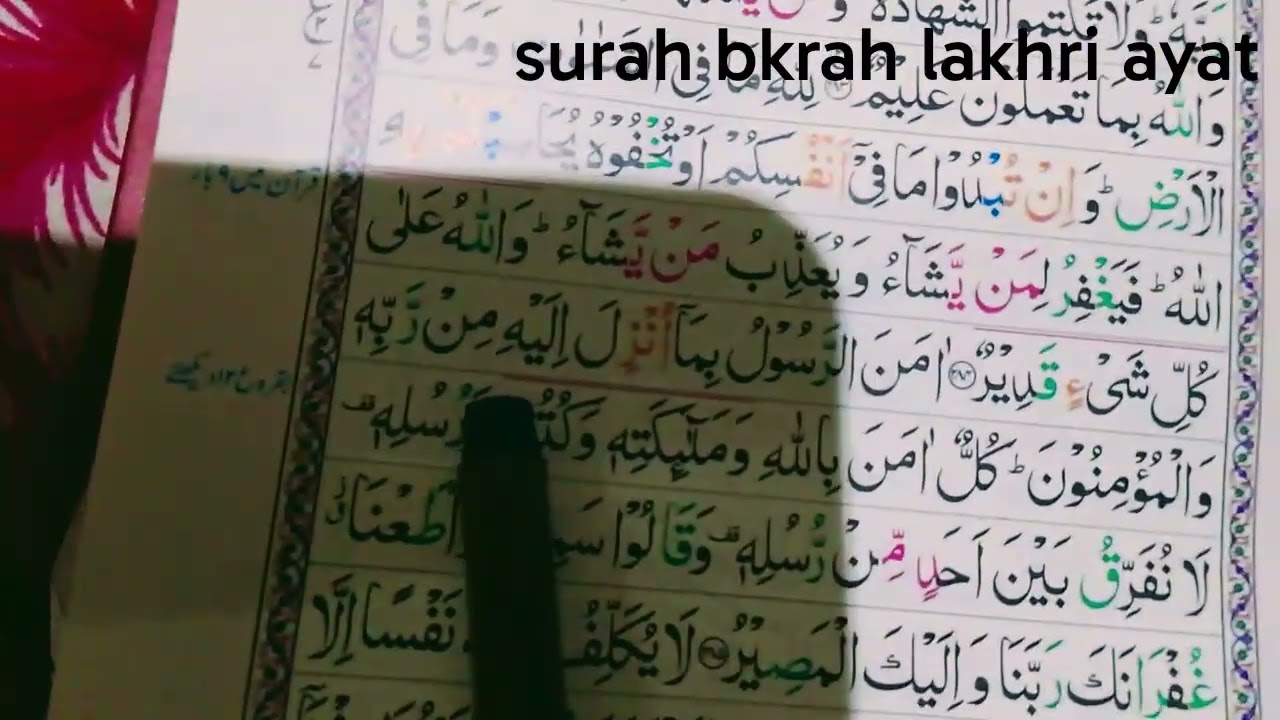 surah bkrah lakhri ayat
وَلَا تَكْتُمُوا الشَّهَادَةَ
وَاللّٰهُ بِمَا تَعْمَلُوْنَ عَلِيْمٌ لِلّٰهِ مَا فِى وَمَا فِى
الْاَرْضِ ؕ وَ اِنْ تُبْدُوْا مَا فِىْۤ اَنْفُسِكُمْ اَوْ تُخْفُوْهُ
اللّٰهُ ؕ فَيَغْفِرُ لِمَنْ يَّشَآءُ وَ يُعَذِّبُ مَنْ يَّشَآءُ ؕ وَاللّٰهُ عَلٰى
كُلِّ شَىْءٍ قَدِيْرٌ ۝ اٰمَنَ الرَّسُوْلُ بِمَاۤ اُنْزِلَ اِلَيْهِ مِنْ رَّبِّهٖ
وَالْمُؤْمِنُوْنَ ؕ كُلٌّ اٰمَنَ بِاللّٰهِ وَمَلٰٓئِكَتِهٖ وَرُسُلِهٖ
لَا نُفَرِّقُ بَيْنَ اَحَدٍ مِّنْ رُّسُلِهٖ وَقَالُوْا اَطَعْنَا
غُفْرَانَكَ رَبَّنَا وَ اِلَيْكَ الْمَصِيْرُ ۝ لَا يُكَلِّفُ نَفْسًا اِلَّا